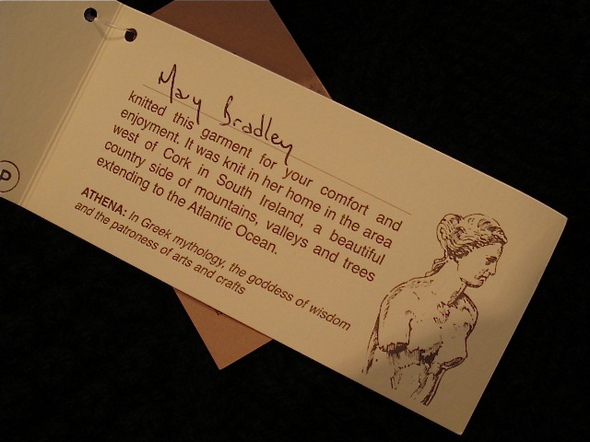 Mary Bradley
knitted this garment for your comfort and
enjoyment. It was knit in her home in the area
west of Cork in South Ireland, a beautiful
country side of mountains, valleys and trees
extending to the Atlantic Ocean.
ATHENA: In Greek mythology, the goddess of wisdom
and the patroness of arts and crafts
P